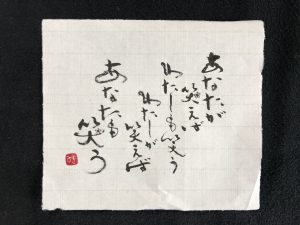 あなたが
笑えば
わたしも笑う
わたしが
笑えば
あなたも
笑う